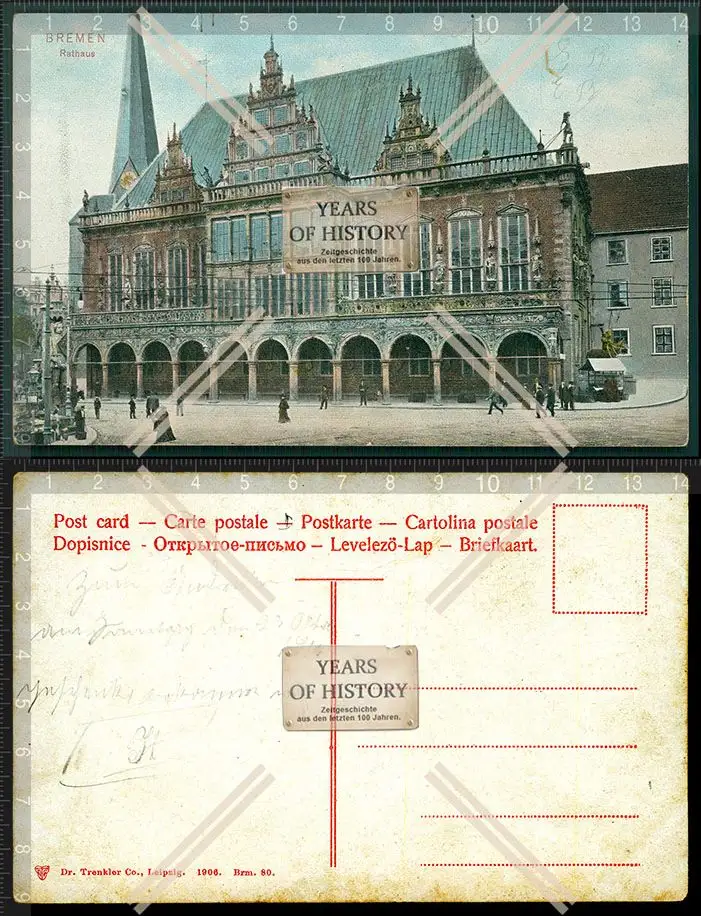 BREMEN
Rathaus
YEARS
OF HISTORY
Zeitgeschichte
aus den letzten 100 Jahren.
1 2 3 4 5 6 7 8 9 10 11 12 13 14
Post card — Carte postale — Postkarte — Cartolina postale
Dopisnice - Открытое-письмо – Levelező-Lap – Briefkaart.
am Sonntag den
YEARS
OF HISTORY
Zeitgeschichte
aus den letzten 100 Jahren.
Dr. Trenkler Co., Leipzig. 1906. Brm. 80.